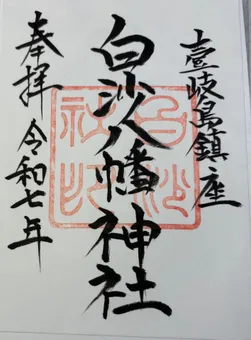 壹岐島鎮座
白沙八幡神社
奉拝 令和七年
白沙社印